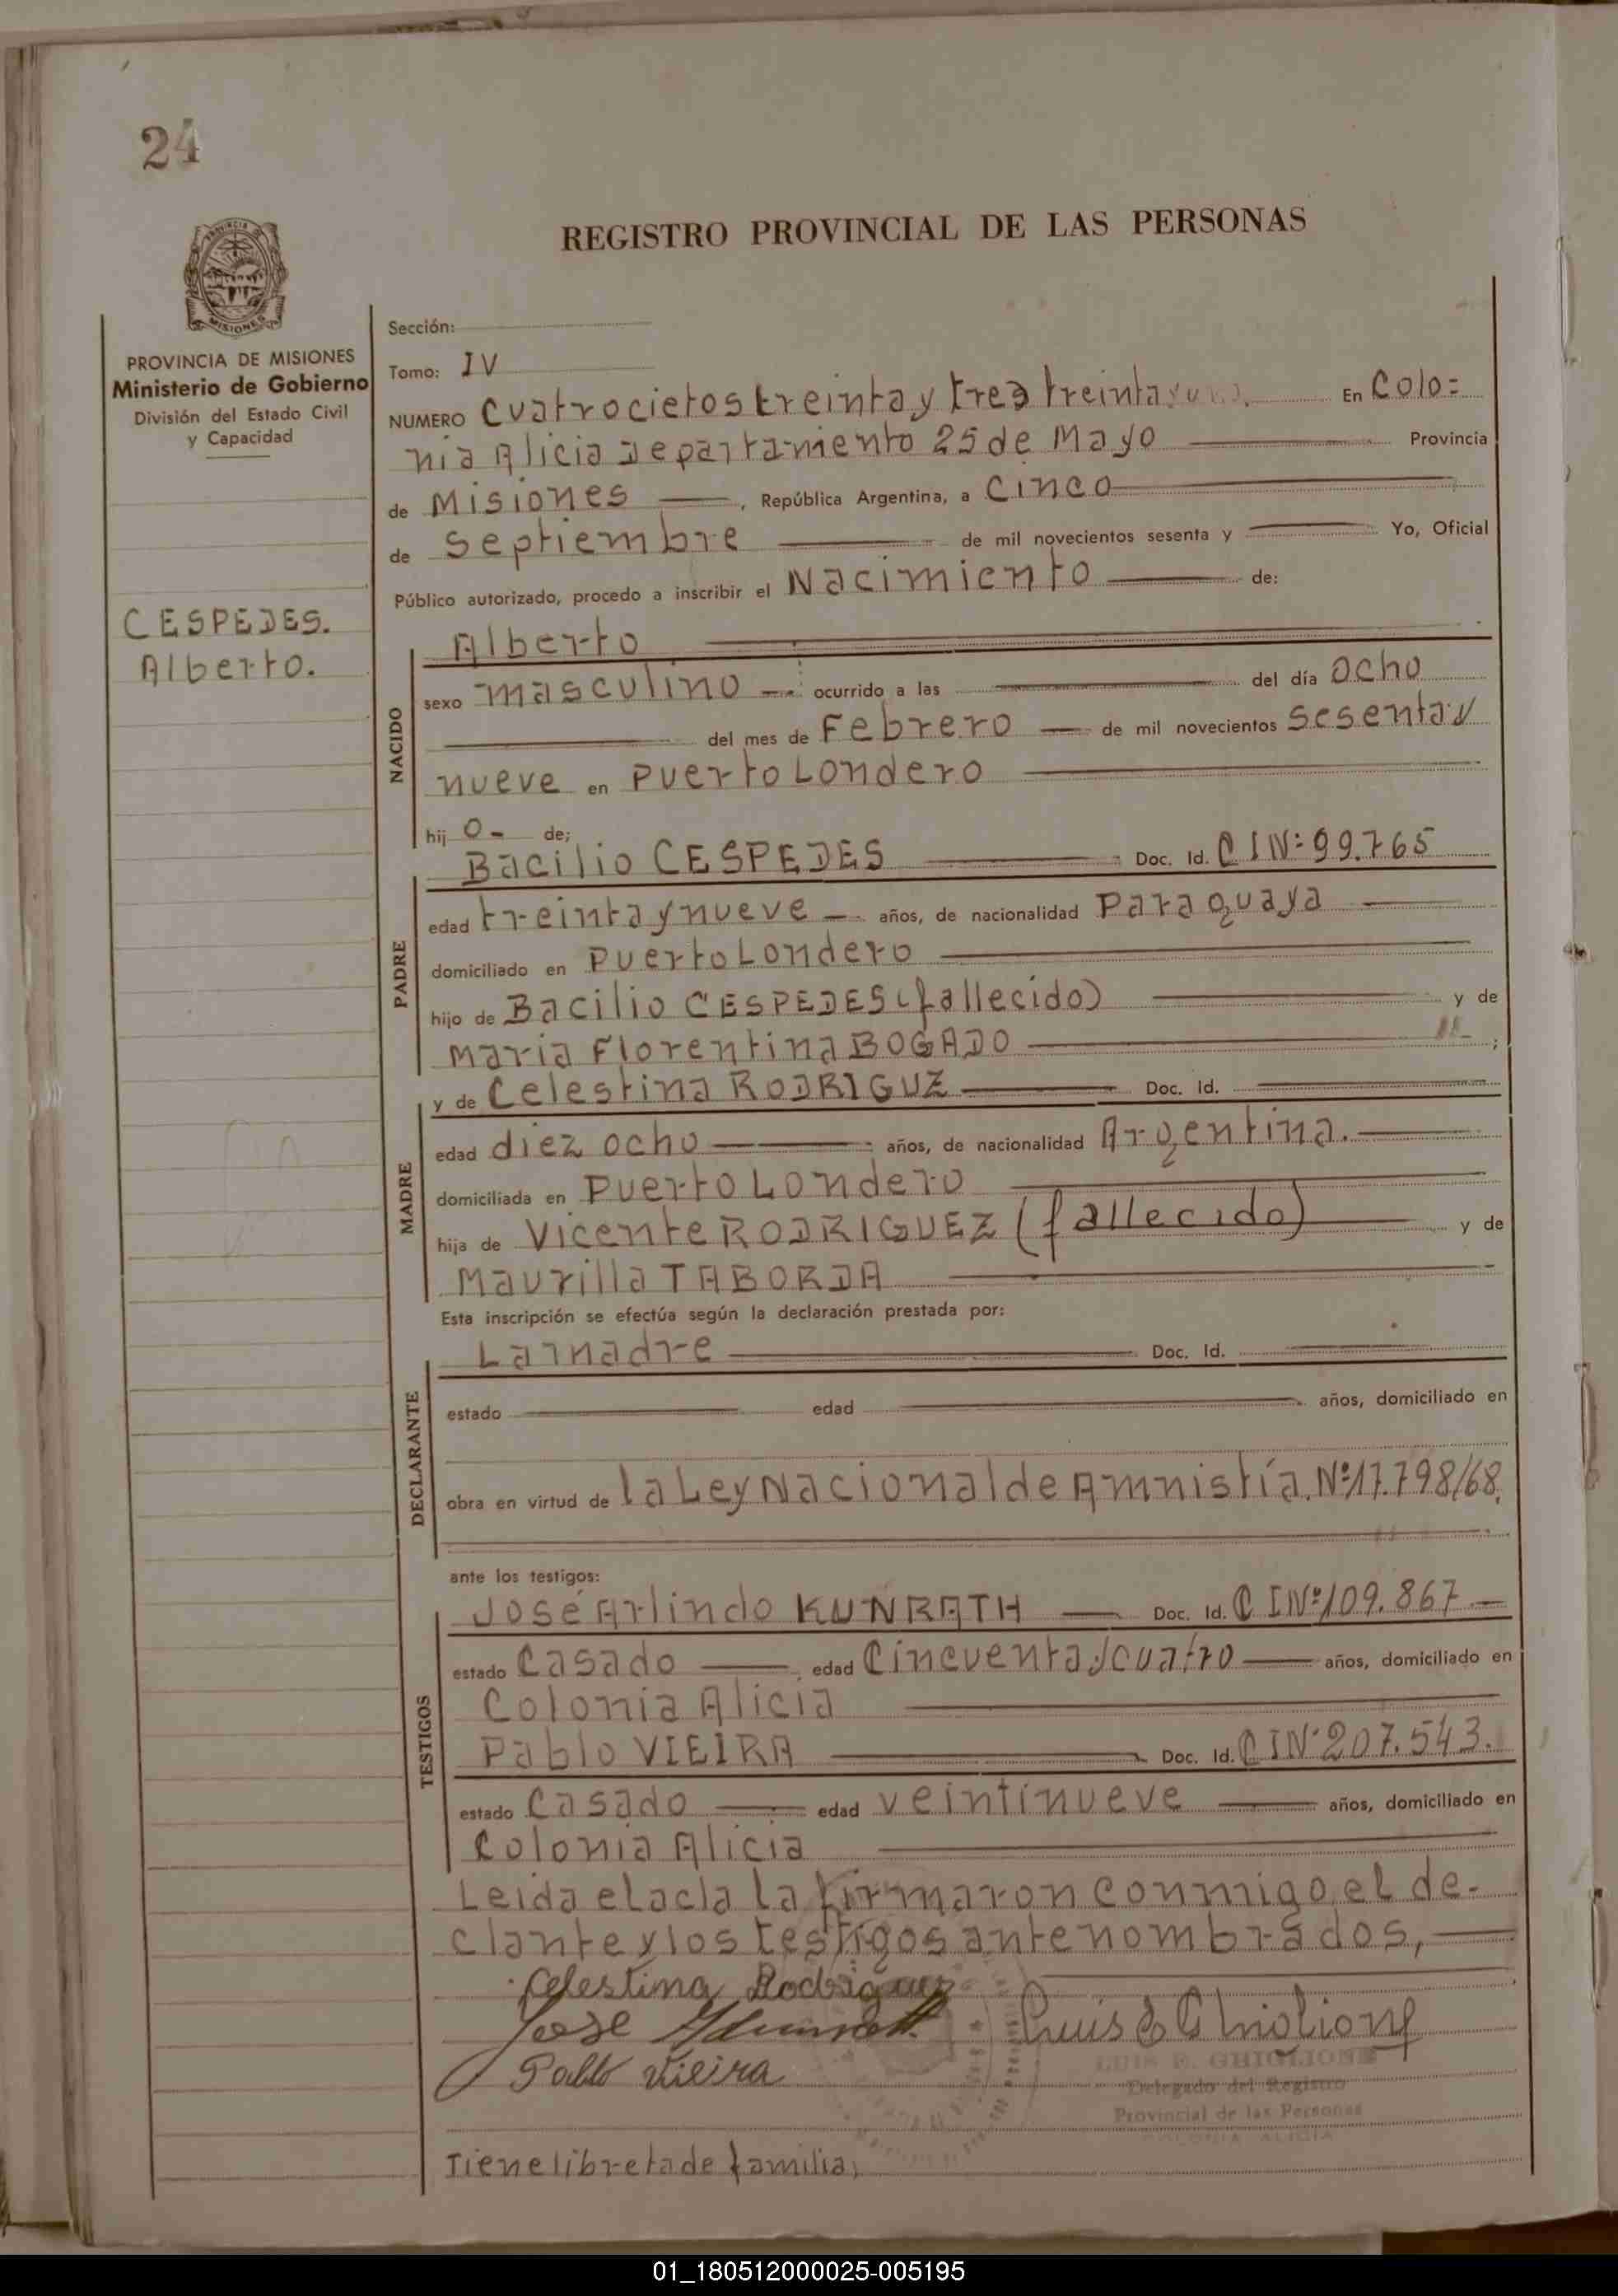 24
REGISTRO PROVINCIAL DE LAS PERSONAS
PROVINCIA DE MISIONES
Ministerio de Gobierno
División del Estado Civil
y Capacidad
CESPEDES.
Alberto.
Sección:
Tomo: IV
NUMERO Cuatrocietos treinta y tres treinta En Colo=
nia Alicia Departamiento 25 de Mayo Provincia
de Misiones , República Argentina, a Cinco
de septiembre de mil novecientos sesenta y Yo, Oficial
Público autorizado, procedo a inscribir el Nacimiento de:
NACIDO
Alberto
sexo masculino ocurrido a las del día ocho
del mes de Febrero de mil novecientos sesenta y
nueve en Puerto Londero
hij o- de;
PADRE
Bacilio CESPEDES Doc. Id. C I Nº 99.765
edad treinta y nueve años, de nacionalidad Paraguaya
domiciliado en Puerto Londero
hijo de Bacilio CESPEDES (fallecido) y de
Maria Florentina BOGADO ;
MADRE
y de Celestina RODRIGUZ Doc. Id.
edad diez ocho años, de nacionalidad Argentina.
domiciliada en Puerto Londero
hija de Vicente RODRIGUEZ (fallecido) y de
Maurilla TABORDA
Esta inscripción se efectúa según la declaración prestada por:
DECLARANTE
La madre Doc. Id.
estado edad años, domiciliado en
obra en virtud de la Ley Nacional de Amnistía. Nº 17.798/68.
ante los testigos:
TESTIGOS
José Arlindo KUNRATH Doc. Id. C I Nº 109.867
estado Casado edad Cincuenta y cuatro años, domiciliado en
Colonia Alicia
Pablo VIEIRA Doc. Id. C I Nº 207.543.
estado Casado edad veintinueve años, domiciliado en
Colonia Alicia
Leida el acta la firmaron conmigo, el de-
clante y los testigos antenombrados,
Celestina Rodriguez
Jose
Pablo Vieira
Luis E Ghiglione
LUIS E. GHIGLIONE
Delegado del Registro
Provincial de las Personas
COLONIA ALICIA
Tiene libreta de familia,
01_180512000025-005195